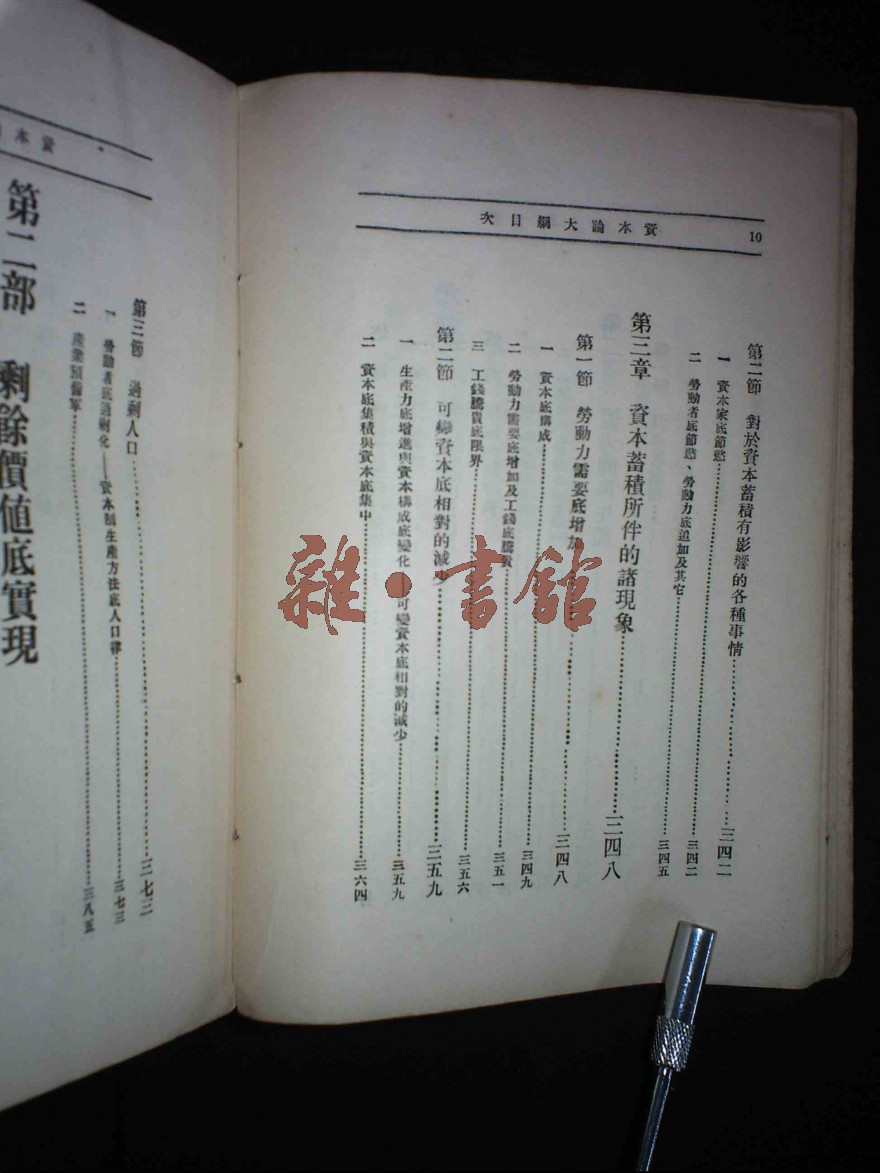 資本論大綱目次
10
第二節 對於資本蓄積有影響的各種事情……三四二
一 資本家底節慾……三四二
二 勞動者底節慾、勞動力底追加及其它……三四五
第三章 資本蓄積所伴的諸現象……三四八
第一節 勞動力需要底增加……三四八
一 資本底構成……三四九
二 勞動力需要底增加及工錢底騰貴……三五一
三 工錢騰貴底限界……三五六
第二節 可變資本底相對的減少……三五九
一 生產力底增進與資本構成底變化 可變資本底相對的減少……三五九
二 資本底集積與資本底集中……三六四
資本
第三節 過剩人口……三七三
一 勞動者底過剩化——資本制生產方法底人口律……三七三
二 產業預備軍……三八五
第二部 剩餘價値底實現
雜·書館